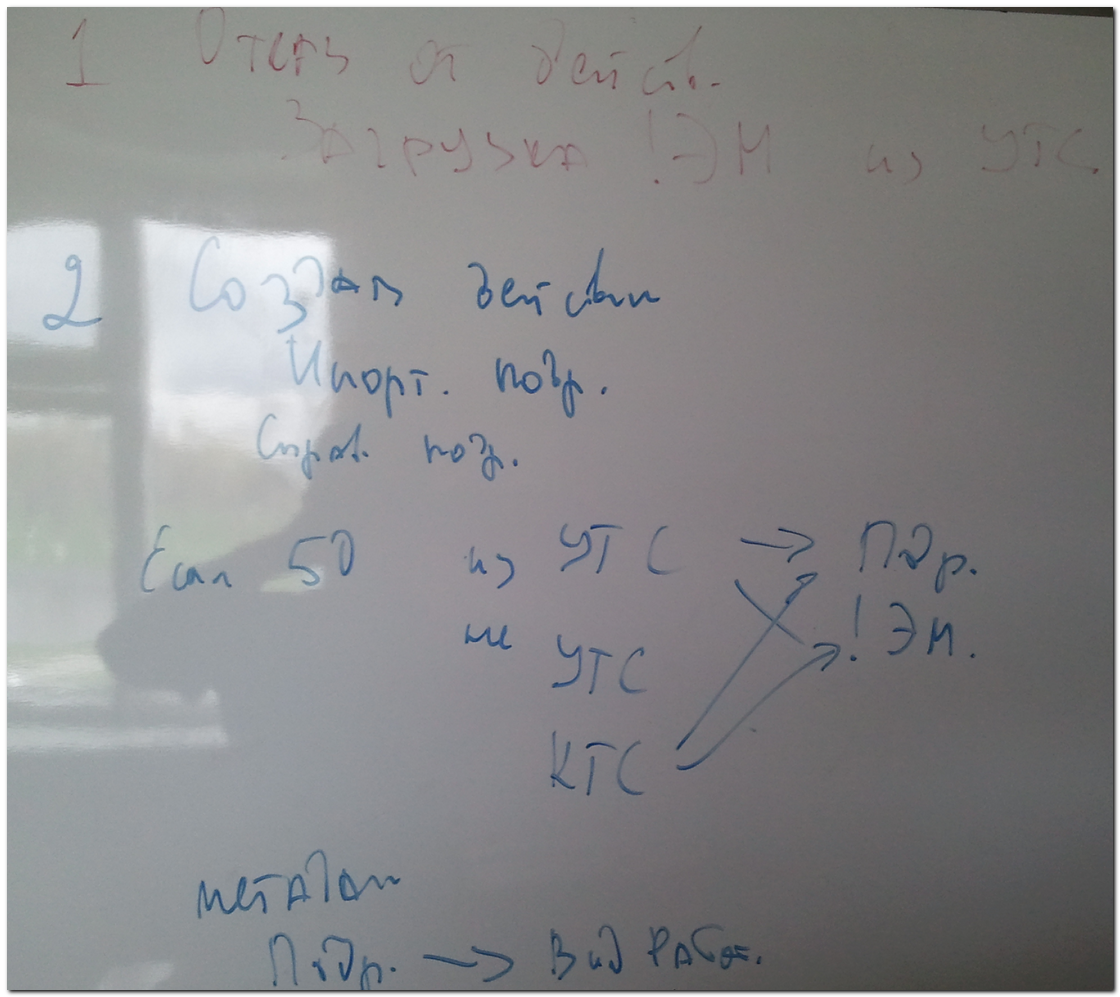 1 Отказ от действ.
Загрузка !ЭМ из УТС
2 Создан действи
Импорт. подр.
Справ. подр.
Если 50 из УТС → Пдр.
не УТС !ЭМ.
КТС
метадан
Подр. → Вид Работ.